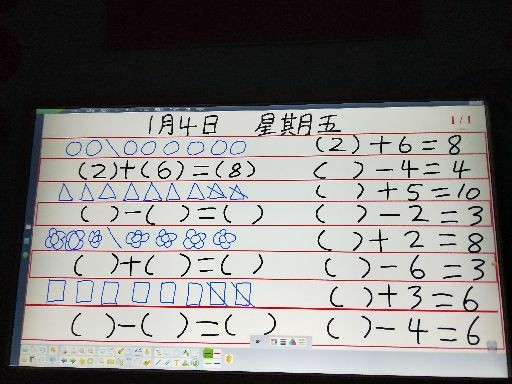 1月4日 星期五
1/1
(2)+6=8
(2)+(6)=(8)
( )-4=4
( )+5=10
( )-( )=( )
( )-2=3
( )+2=8
( )+( )=( )
( )-6=3
( )+3=6
( )-( )=( )
( )-4=6